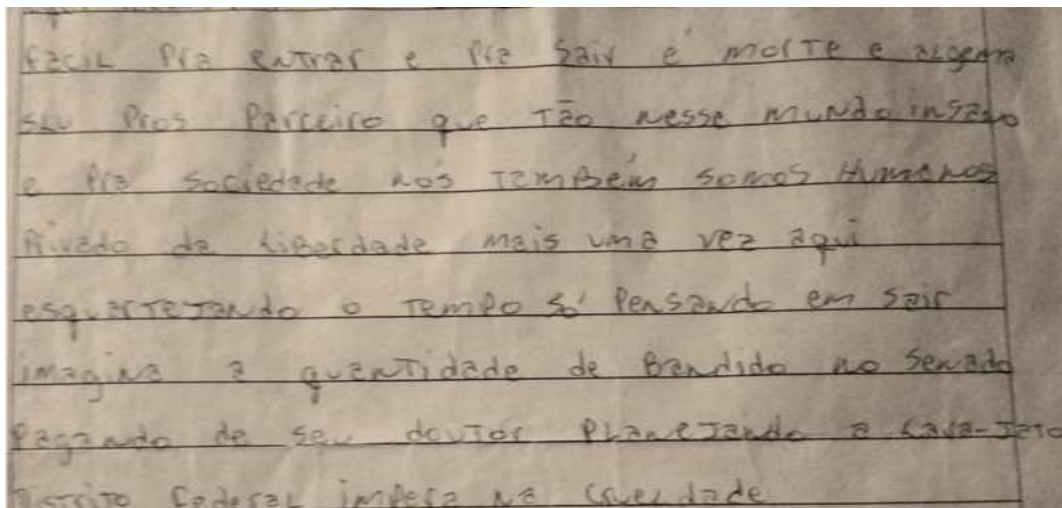 facil pra entrar e pra sair é morte e algema
salv pros parceiro que tão nesse mundo insano
e pra sociedade nós também somos humanos
privado da liberdade mais uma vez aqui
esquartejando o tempo só pensando em sair
imagina a quantidade de bandido no senado
pagando de seu doutor planejando a lava-jato
Distrito federal impera na crueldade